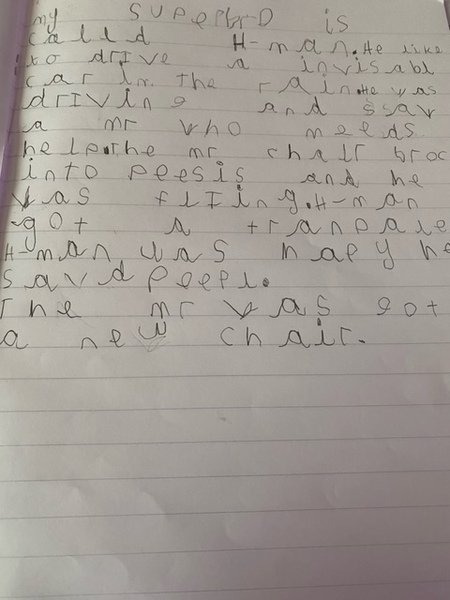 my SUPerbrD is
calld H-man.He like
to drive a invisabl
car in. the rain.He vas
drIving and ssav
a mr vho needs
help.The mr chair broc
into peesis and he
vas flIing.H-man
got a tranpale
H-man vas hapy he
savd peepl.
The mr vas got
a new chair.